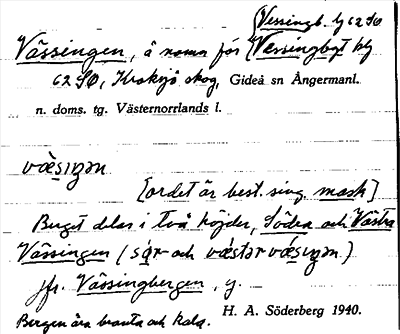 (Vessingb. bg 62 SO
Vässingen, å namn för (Vessingbgt bg
62 SO, Kroksjö skog, Gideå sn Ångermanl.
n. doms. tg. Västernorrlands l.
væ̀siŋən
[ordet är best. sing. mask]
Berget delas i två höjder, Södra och Västra
Vässingen (sǫ́r- och væ̀stər væ̀siŋən)
jfr. Vässingbergen, y.
H. A. Söderberg 1940.
Bergen äro branta och kala.